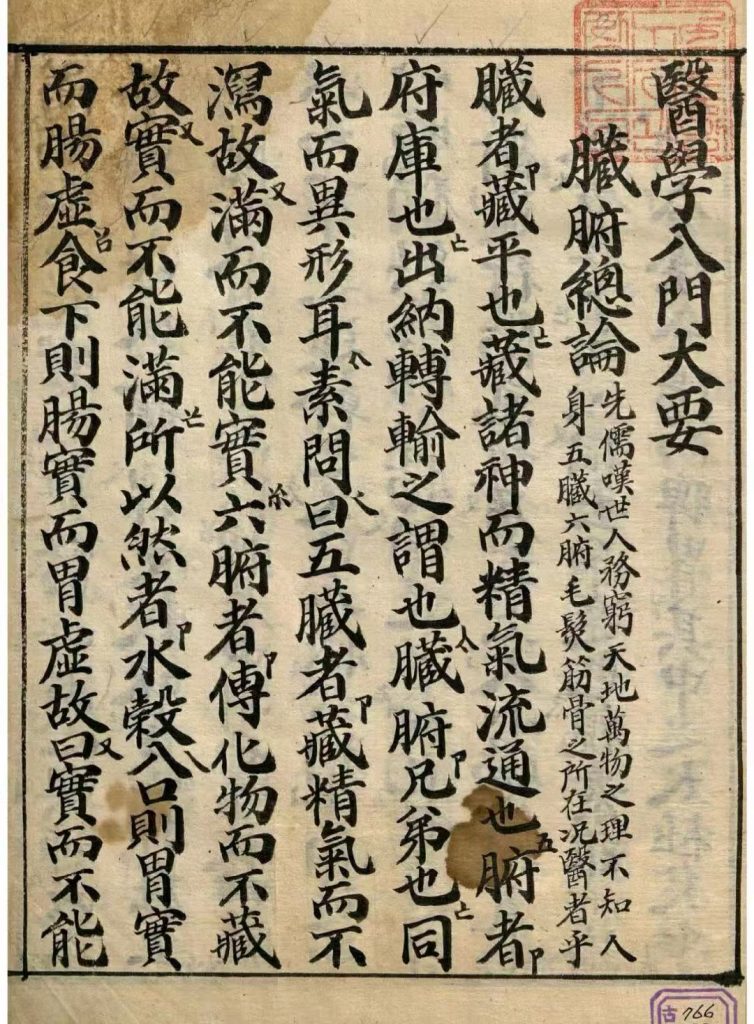 醫學入門大要
臟腑總論
先儒嘆世人務窮天地萬物之理不知人
身五臟六腑毛髮筋骨之所在况醫者乎
臟者藏平也藏諸神而精氣流通也腑者
府庫也出納轉輸之謂也臟腑兄弟也同
氣而異形耳素問曰五臟者藏精氣而不
瀉故滿而不能實六腑者傳化物而不藏
故實而不能滿所以然者水穀入口則胃實
而腸虛食下則腸實而胃虛故曰實而不能
古 766